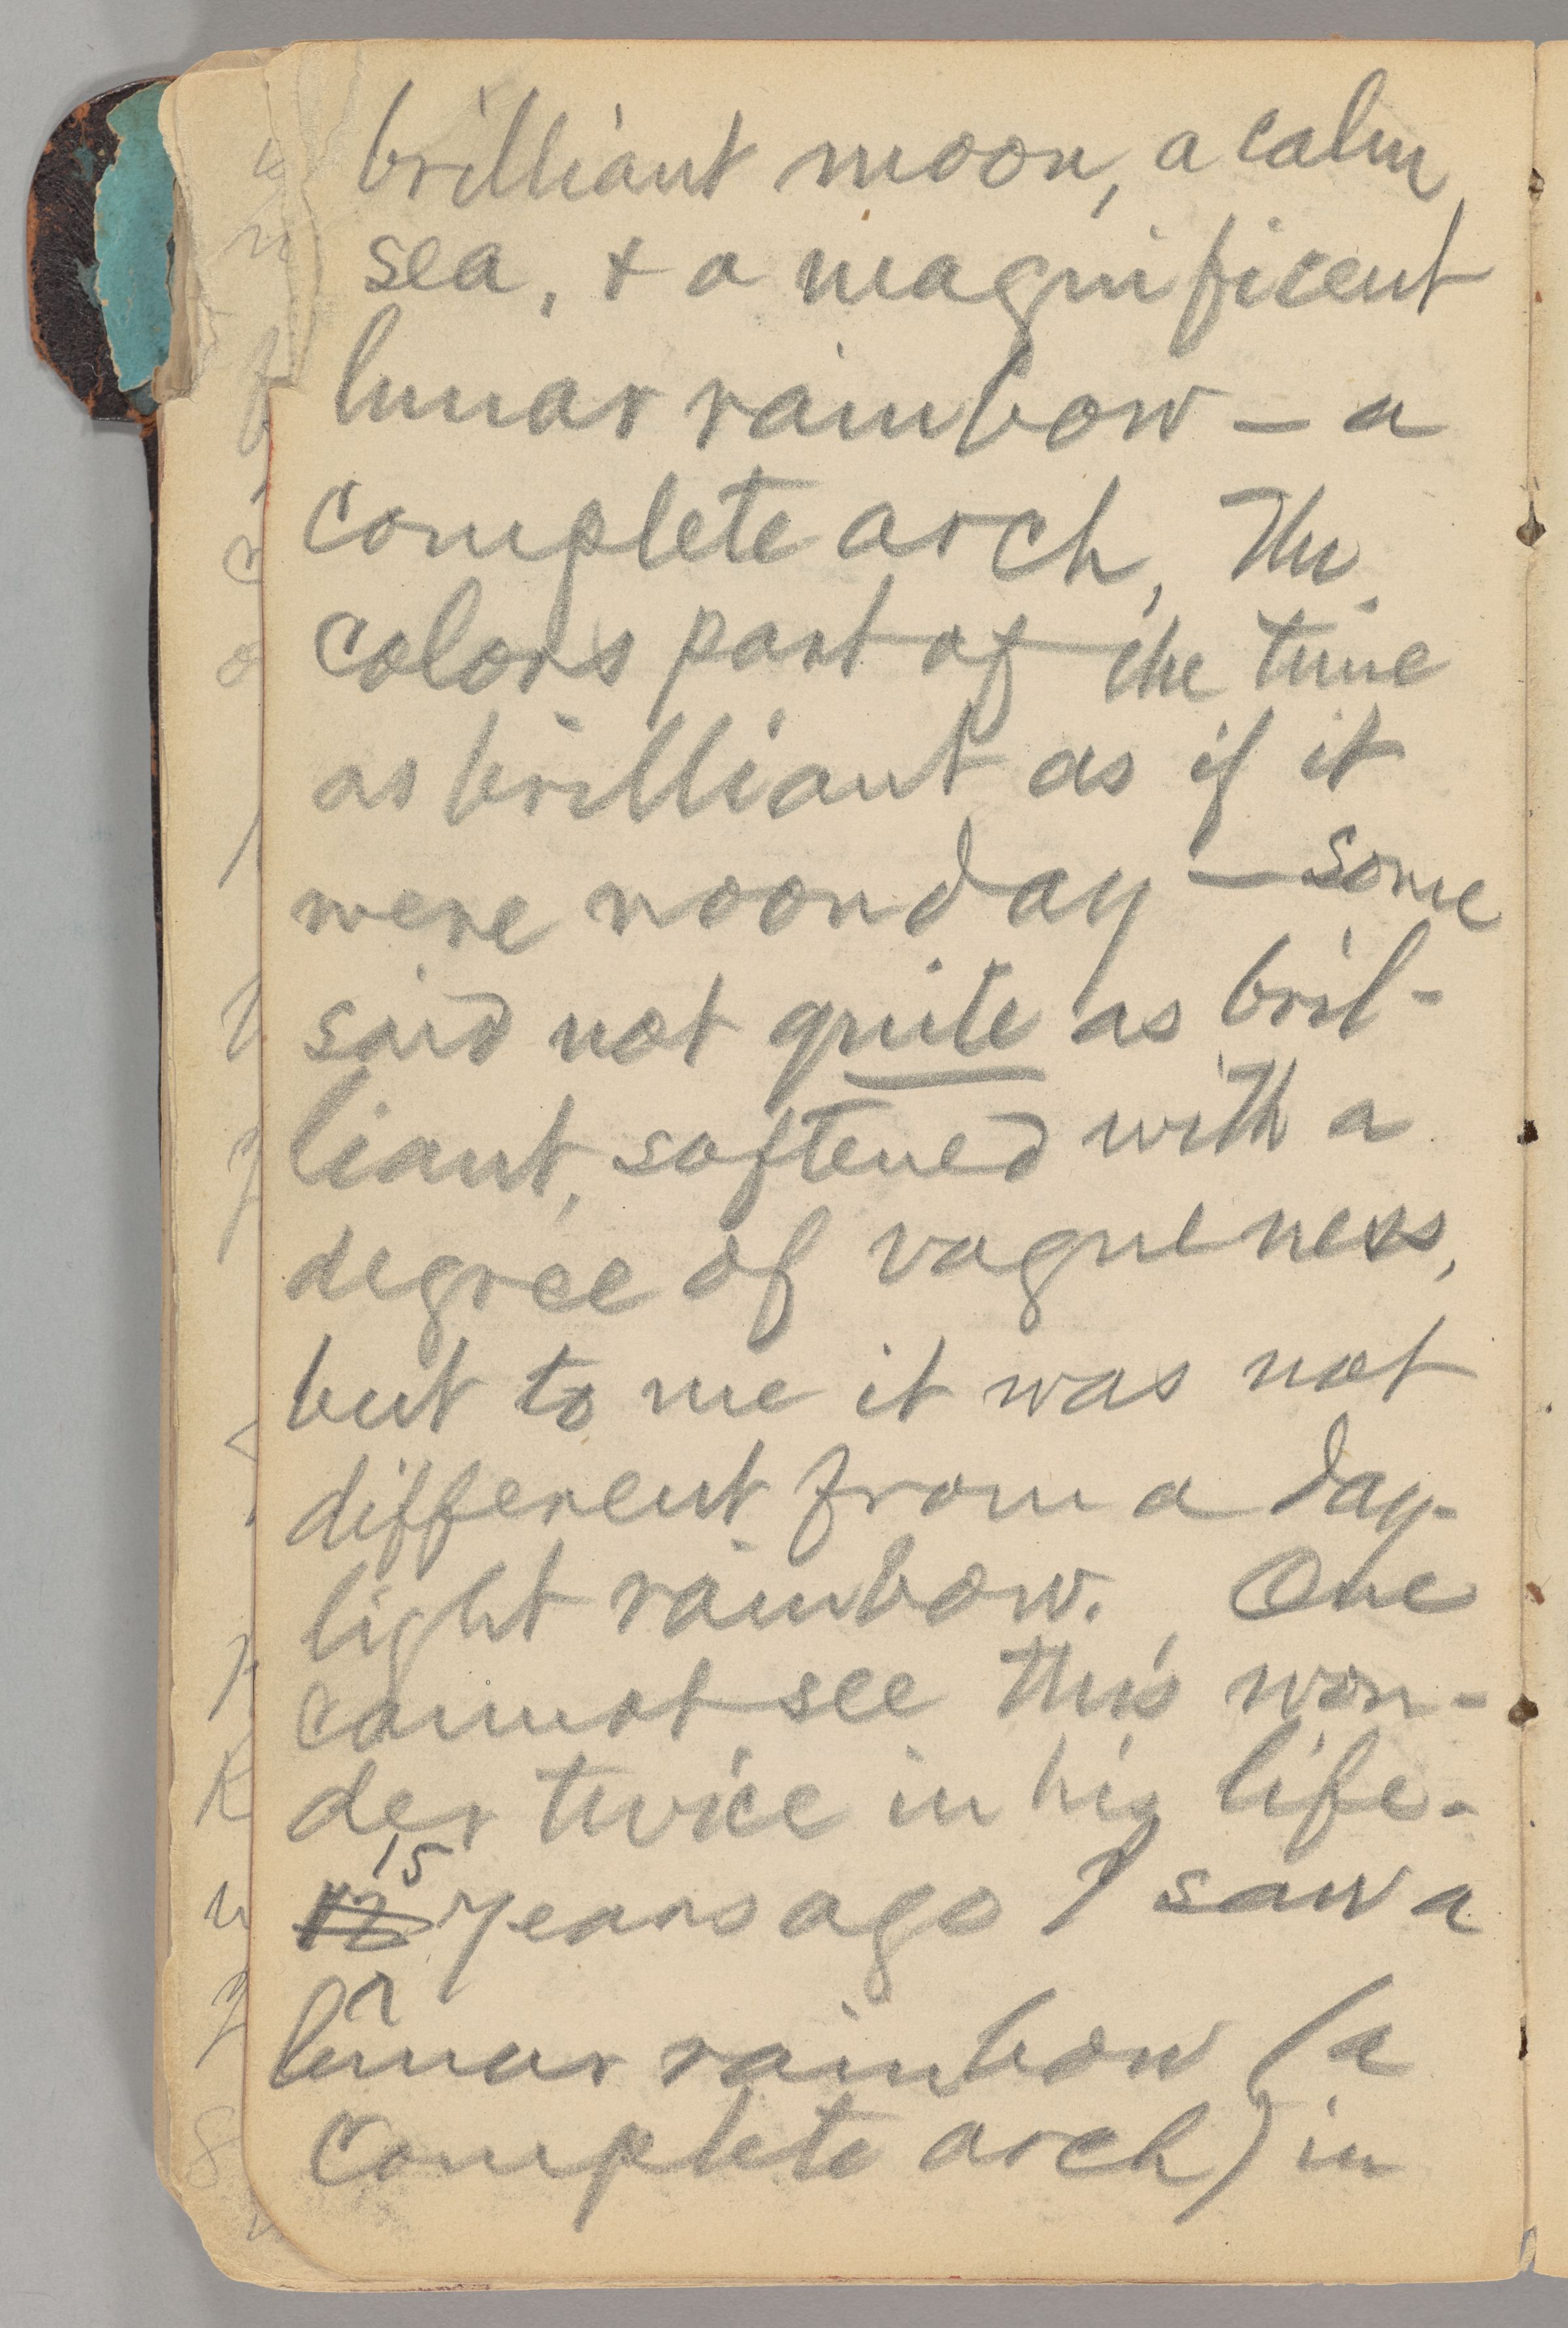 brilliant moon, a calm
sea, & a magnificent
lunar rainbow — a
complete arch, The
colors part of the time
as brilliant as if it
were noonday — some
said not quite as bril-
liant, softened with a
degree of vagueness,
but to me it was not
different from a day-
light rainbow. One
cannot see this won-
der twice in his life.
15
12 years ago I saw a
lunar rainbow (a
complete arch) in